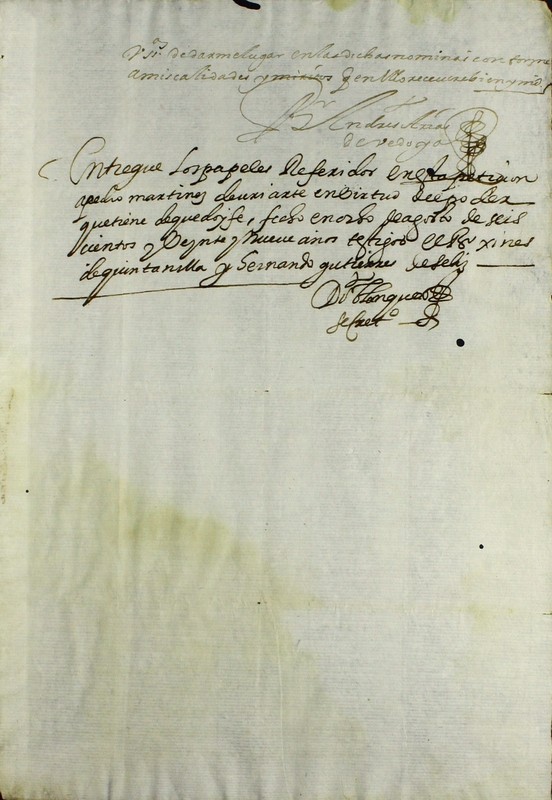 V. S.ª de darme lugar en las dichas nominas conforme
a mis calidades y meritos q en ello recevere bien y md
B.r Andres Arias
de vedoya
Entregue los papeles Referidos en esta peticion
a pedro martines de uriarte en Virtud del poder
que tiene de que doi fe, fecho en ocho de agosto de seis
cientos y Veynte y nueve anos testigos el B.r xines
de quintanilla y Fernando gutierres de selis
D.or blanques
secret.º